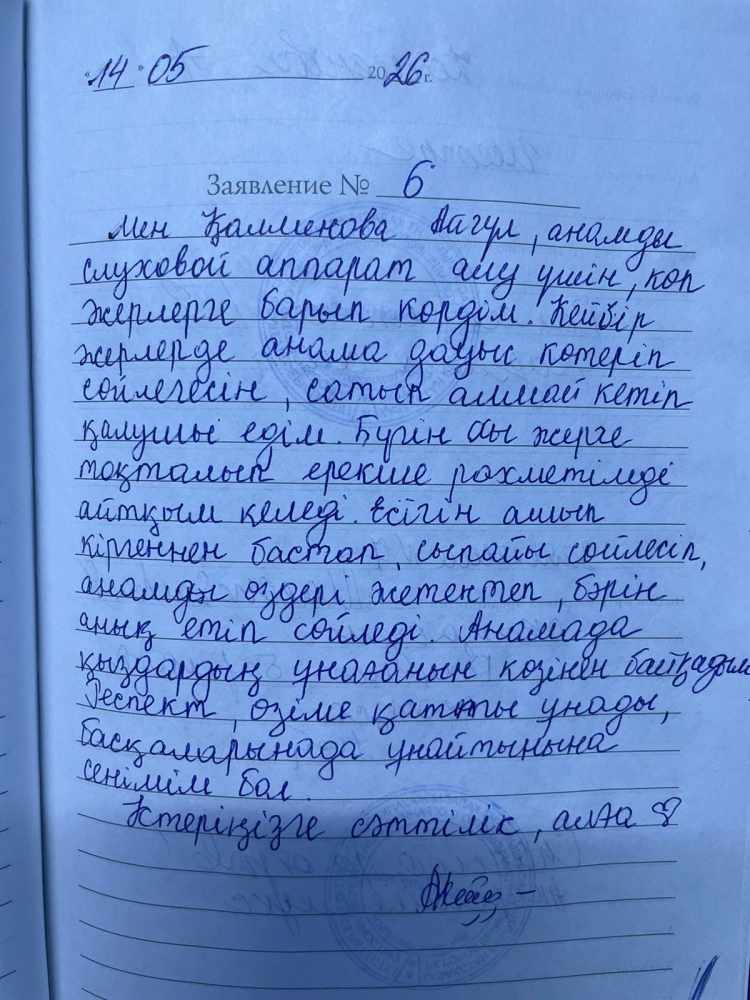 "14" 05 2026 г.
Заявление № 6
Мен Қалменова Айгул, анамды
слуховой аппарат алу үшін, көп
жерлерге барып көрдім. Кейбір
жерлерде анама дауыс көтеріп
сөйлегесін, сатып алмай кетіп
қалушы едім. Бүгін осы жерге
тоқталып ерекше рахметімді
айтқым келеді. Есігін ашып
кіргеннен бастап, сыпайы сөйлесіп,
анамды өздері жетектеп, бәрін
анық етіп сөйледі. Анамада
қыздардың ұнағанын көзінен байқадым
Респект, өзіме қатты ұнады,
басқаларынада ұнайтынына
сенімім бол.
Істеріңізге сәттілік, алға